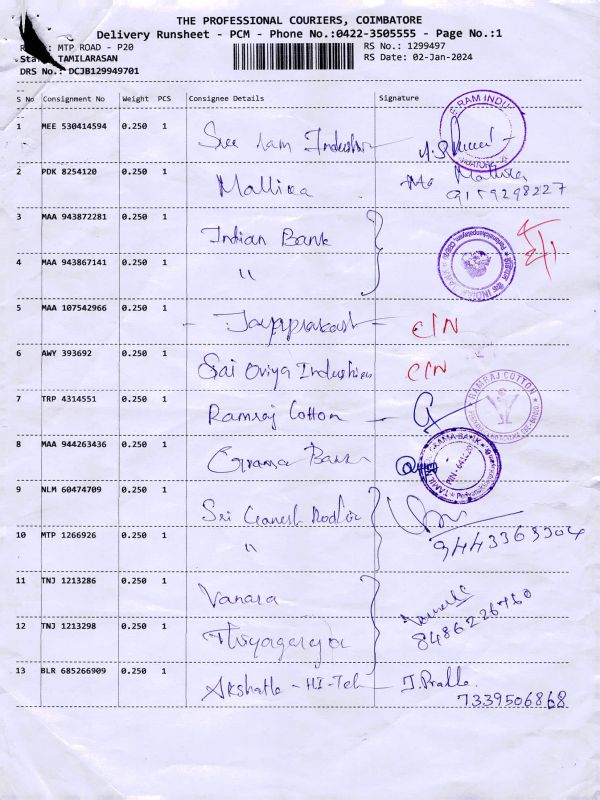 THE PROFESSIONAL COURIERS, COIMBATORE
Delivery Runsheet - PCM - Phone No.:0422-3505555 - Page No.:1
MTP ROAD - P20
RS No.: 1299497
TAMILARASAN
RS Date: 02-Jan-2024
DRS No.: DCJB129949701
S No Consignment No Weight PCS Consignee Details Signature
1 MEE 530414594 0.250 1 Sree Ram Industries
2 PDK 8254120 0.250 1 Mallika Mallika
9159298227
3 MAA 943872281 0.250 1 Indian Bank
4 MAA 943867141 0.250 1 "
5 MAA 107542966 0.250 1 - Jayaprakash - C/N
6 AWY 393692 0.250 1 Sai Oviya Industries C/N
7 TRP 4314551 0.250 1 Ramraj Cotton -
RAMRAJ COTTON
8 MAA 944263436 0.250 1 Grama Bank
TAMIL GRAMA BANK
9 NLM 60474709 0.250 1 Sri Ganesh
10 MTP 1266926 0.250 1 "
9443363504
11 TNJ 1213286 0.250 1 Vanara
12 TNJ 1213298 0.250 1 Thiyagaraja
8486226760
13 BLR 685266909 0.250 1 Akshatha - HI-Teh -
7339506868